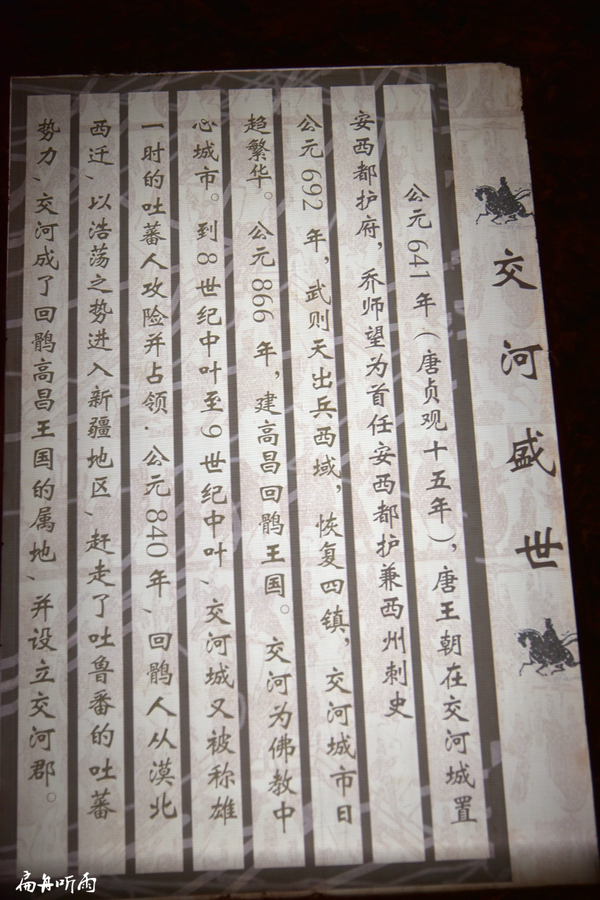 交河盛世
公元641年（唐贞观十五年），唐王朝在交河城置
安西都护府，乔师望为首任安西都护兼西州刺史
公元692年，武则天出兵西域，恢复四镇，交河城市日
趋繁华。公元866年，建高昌回鹘王国。交河为佛教中
心城市。到8世纪中叶至9世纪中叶、交河城又被称雄
一时的吐蕃人攻险并占领．公元840年、回鹘人从漠北
西迁、以浩荡之势进入新疆地区、赶走了吐鲁番的吐蕃
势力、交河成了回鹘高昌王国的属地、并设立交河郡。
扁舟听雨